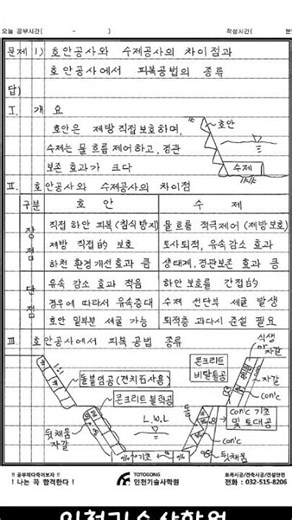 오늘 공부시간( - ) 작성시간( 분
문제 1) 호안공사와 수제공사의 차이점과
호안공사에서 피복공법의 종류
답)
I. 개요
호안은 제방 직접보호하며,
수제는 물 흐름제어하고, 경관
보존 효과가 크다
호안
수제
II. 호안공사와 수제공사의 차이점
구분 호안 수제
장점 직접 하안 피복(침식방지) 물 흐름 적극제어(제방보호)
제방 직접的 보호 토사퇴적, 유속감소 효과
하천 환경개선효과 큼 생태계, 경관보존 효과 큼
단점 유속 감소 효과 적음 하안 보호를 간접的
경우에 따라서 유속증대 수제 선단부 세굴 발생
호안 밑부분 세굴 가능 퇴적층 과다시 준설 필요
III. 호안공사에서 피복공법 종류
1:1
돌붙임공(견치석사용)
콘크리트블럭공
뒷채움
자갈
기초
L.W.L
콘크리트
비탈틀공
식생
or
자갈
자갈
con'c
돌
con'c 기초
및 토대공
con'c
뒷채움
자갈
!! 공부하다죽어보자 !!
! 나는 꼭 합격한다 !
TOTOGONG
인천기술사학원
토목시공/건축시공/건설안전
전화 : 032-515-8206
인천기술사학원